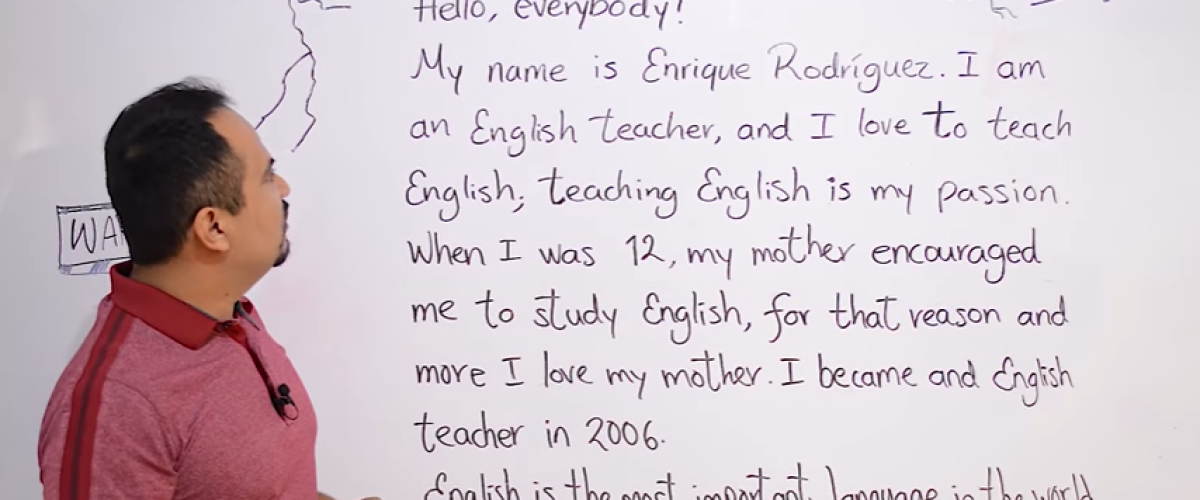 Hello, everybody!
My name is Enrique Rodríguez. I am
an English teacher, and I love to teach
English; teaching English is my passion.
When I was 12, my mother encouraged
me to study English, for that reason and
more I love my mother. I became and English
teacher in 2006.
English is the most important language in the world